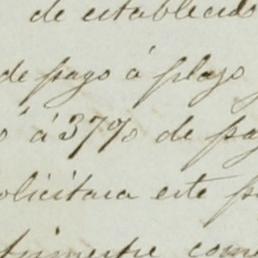 de establecido
de pago á plazo
á 37% de pa
olicitara este p
trimestre come